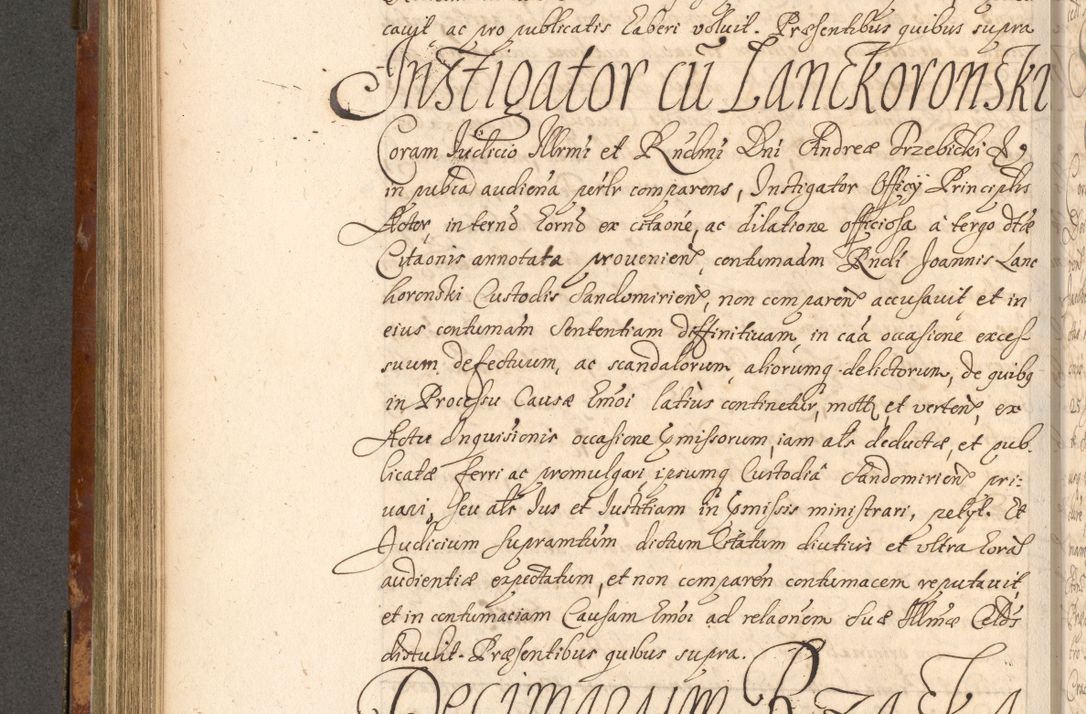 cavit ac pro publicatis haberi voluit. Præsentibus quibus supra
Instigator cū Lanckoronski
Coram Iudicio Illrmi et Rndmi Dni Andreæ Trzebicki &
in pubca audiena pertr comparens, Instigator Officÿ Principlis
Actor, in terno horno ex citaone, ac dilatione officiosa a tergo dtæ
Citaonis annotata provenien, contumadm Rndi Joannis Lanc
koronski Custodis Sandomirien, non comparen accusavit et in
eius contumam Sententiam diffinitivam, in caa occasione exces-
suum, defectuum, ac scandalorum, aliorumq delictorum, de quibq
in Processu Causæ Emoi latius continetur, mott et verten, ex
Actu Inquisionis occasione pmissorum, iam als deductæ, et pub-
licatæ ferri ac promulgari, ipsumq Custodia Sandomirien pri-
vari, seu als Ius et Iustitiam in pmissis ministrari, petÿt. Et
Iudicium supramtum dictum Citatum diutius et ultra horas
audientiæ expectatum, et non comparen contumacem reputavit
et in contumaciam Causam Emoi ad relaonem Suæ Illmæ Celds
distulit. Præsentibus quibus supra.
Decimarum Rzącka